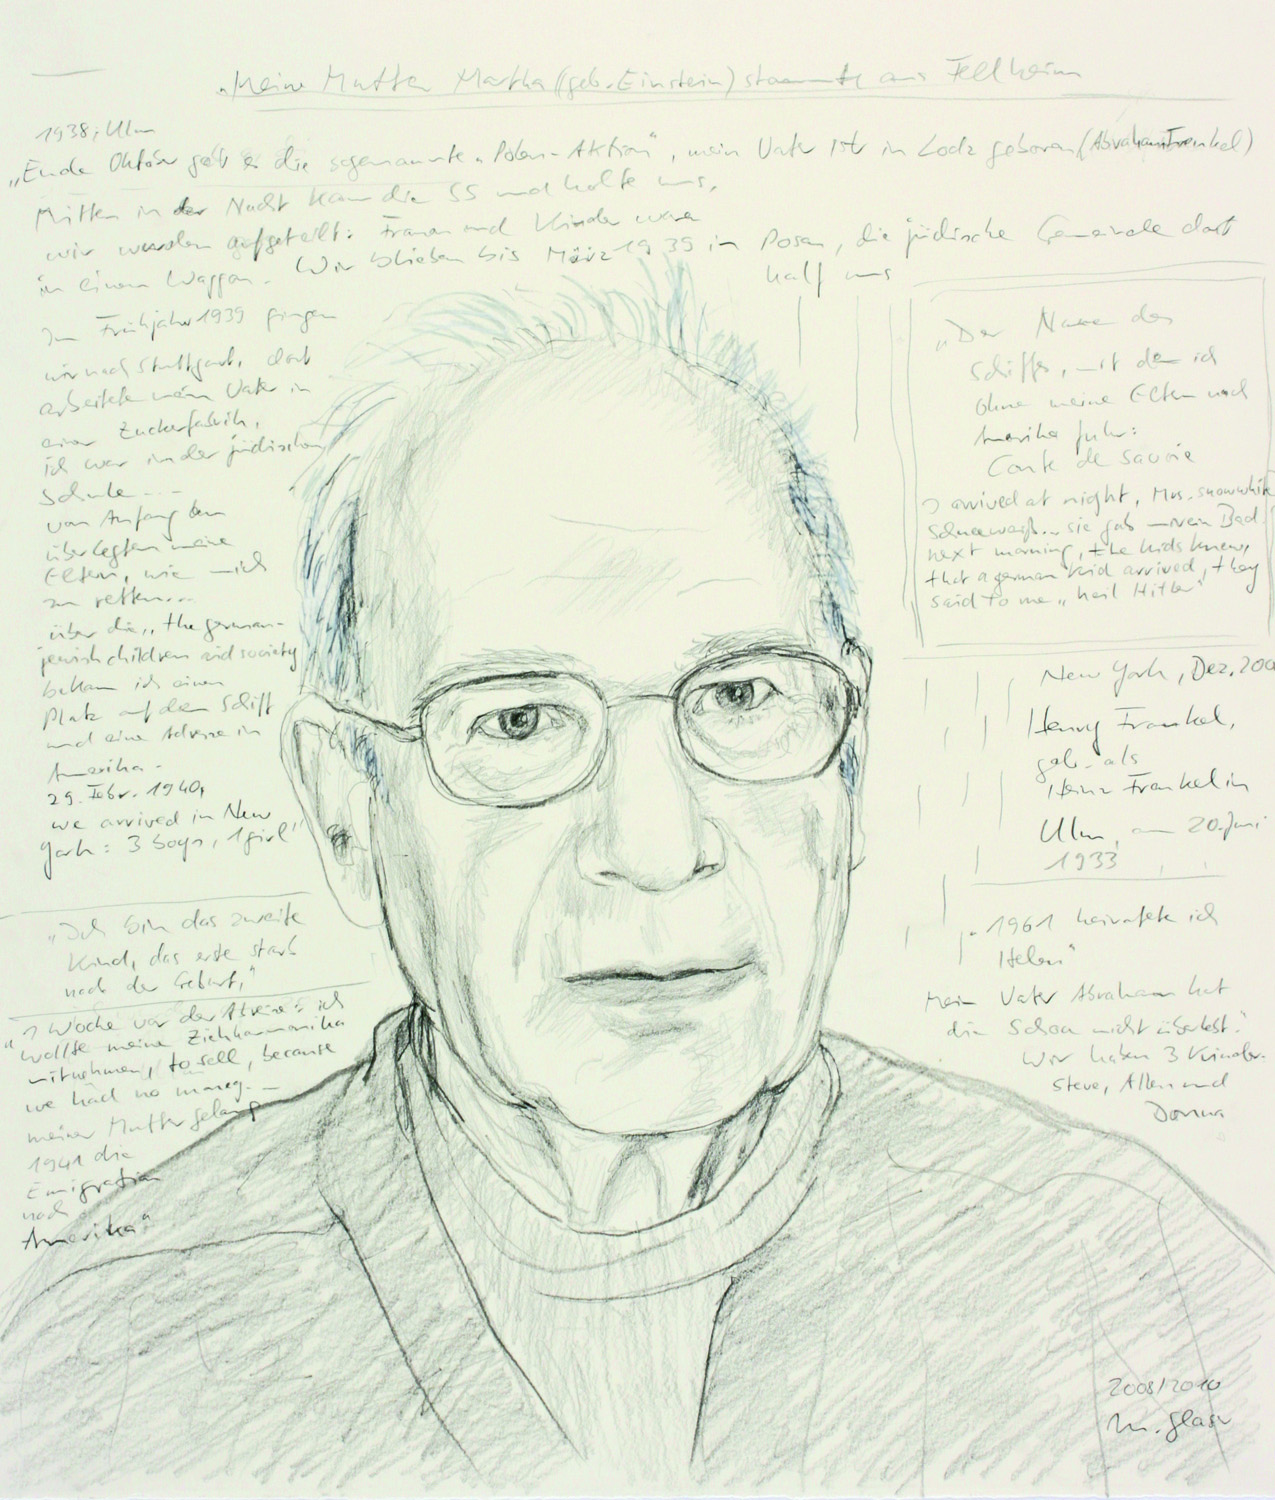 "Meine Mutter Martha (geb. Einstein) stammte aus Fellheim
1938, Ulm
"Ende Oktober gab es die sogenannte "Polen-Aktion", mein Vater ist in Lodz geboren (Abraham Frenkel)
Mitten in der Nacht kam die SS und holte uns,
wir wurden aufgeteilt: Frauen und Kinder waren
in einem Waggon. Wir blieben bis März 1939 in Posen, die jüdische Gemeinde dort
half uns
Im Frühjahr 1939 gingen
wir nach Stuttgart, dort
arbeitete mein Vater in
einer Zuckerfabrik,
ich war in der jüdischen
Schule ...
von Anfang an
überlegten meine
Eltern, wie mich
zu retten...
über die "the german-
jewish children aid society
bekam ich einen
Platz auf dem Schiff
und eine Adresse in
Amerika -
29. Febr. 1940,
we arrived in New
York: 3 boys, 1 girl"
"Ich bin das zweite
Kind, das erste starb
nach der Geburt,"
"1 Woche vor der Abreise: ich
wollte meine Ziehharmonika
mitnehmen, to sell, because
we had no money. -
meiner Mutter gelang
1941 die
Emigration
nach
Amerika"
"Der Name des
Schiffs, mit dem ich
ohne meine Eltern nach
Amerika fuhr:
Conte de Savoie
I arrived at night, Mrs. snowwhite
Schneeweiß.. sie gab mir ein Bad.
next morning, the kids knew,
that a german kid arrived, they
said to me "heil Hitler"
New York, Dez. 200
Henry Frankel,
geb. als
Heinz Frankel in
Ulm, am 20. Juni
1933
"1961 heiratete ich
Helen"
Mein Vater Abraham hat
die Schoa nicht überlebt."
Wir haben 3 Kinder-
Steve, Allen und
Donna
2008/2010
M. Glaser